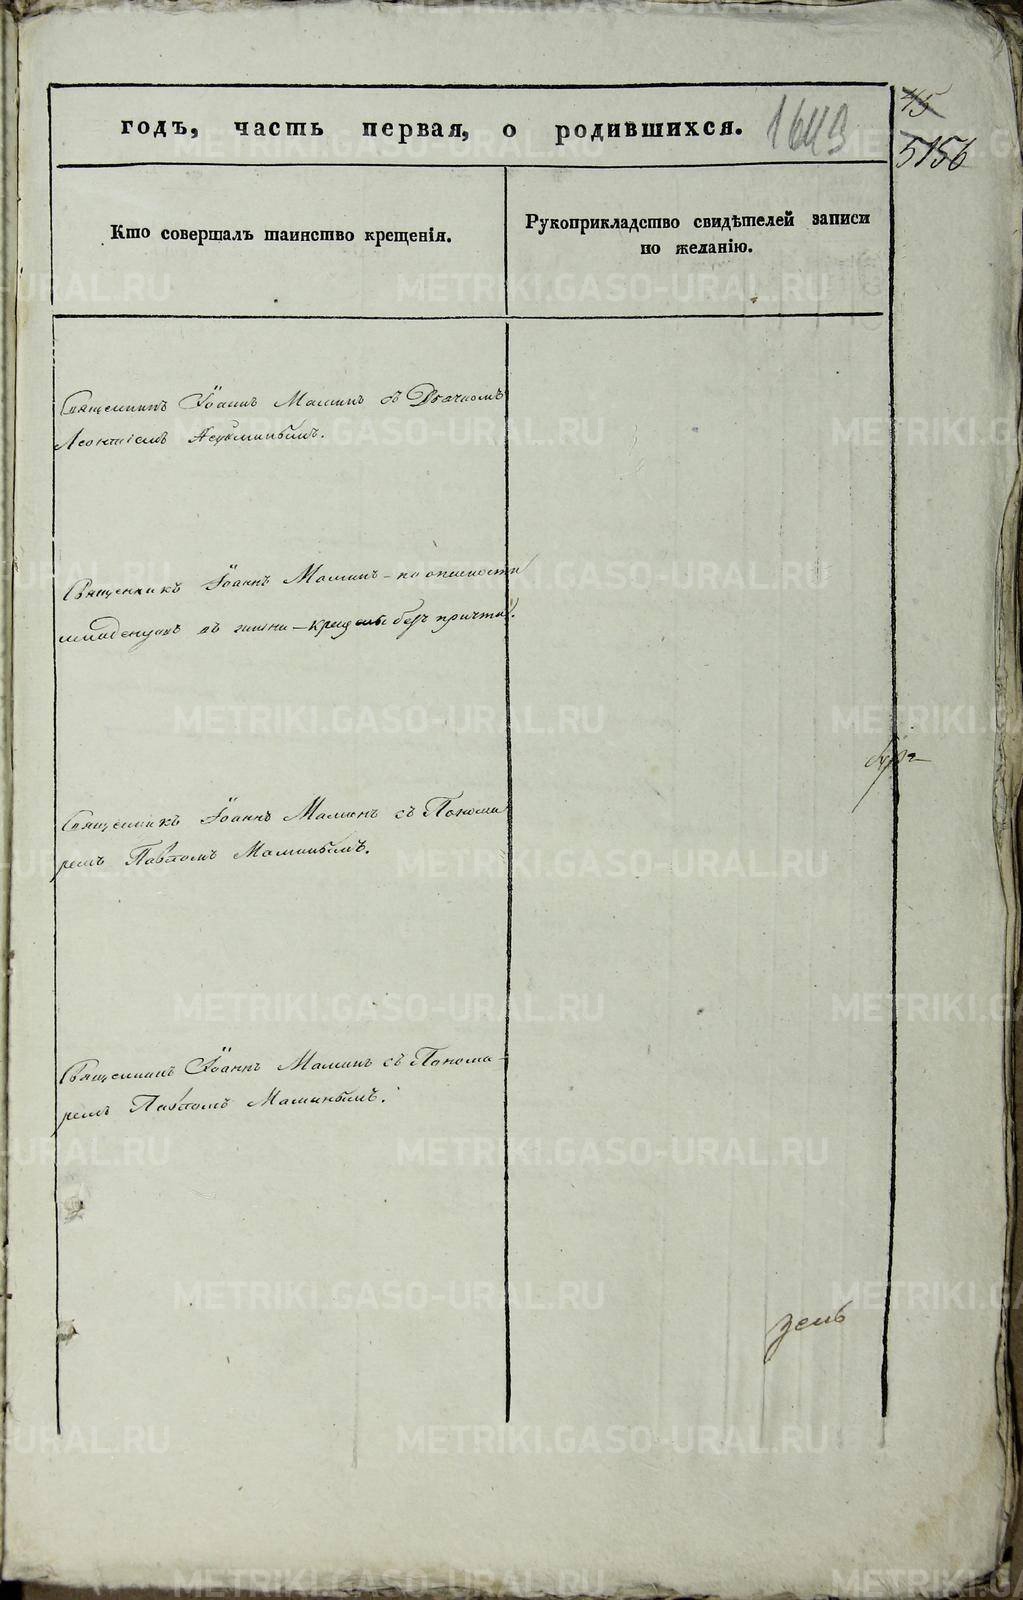 годъ, часть первая, о родившихся.
1643
45
5156
Кто совершалъ таинство крещенія.
Рукоприкладство свидѣтелей записи
по желанію.
Священникъ Іоаннъ Маминъ съ Дьячкомъ
Леонтіемъ
Священникъ Іоаннъ Маминъ – по опасности
младенцовъ въ жизни – крещены безъ причта.
Священникъ Іоаннъ Маминъ съ Понома
ремъ Павломъ Маминымъ.
Священникъ Іоаннъ Маминъ съ Понома-
ремъ Павломъ Маминымъ.
METRIKI.GASO-URAL.RU